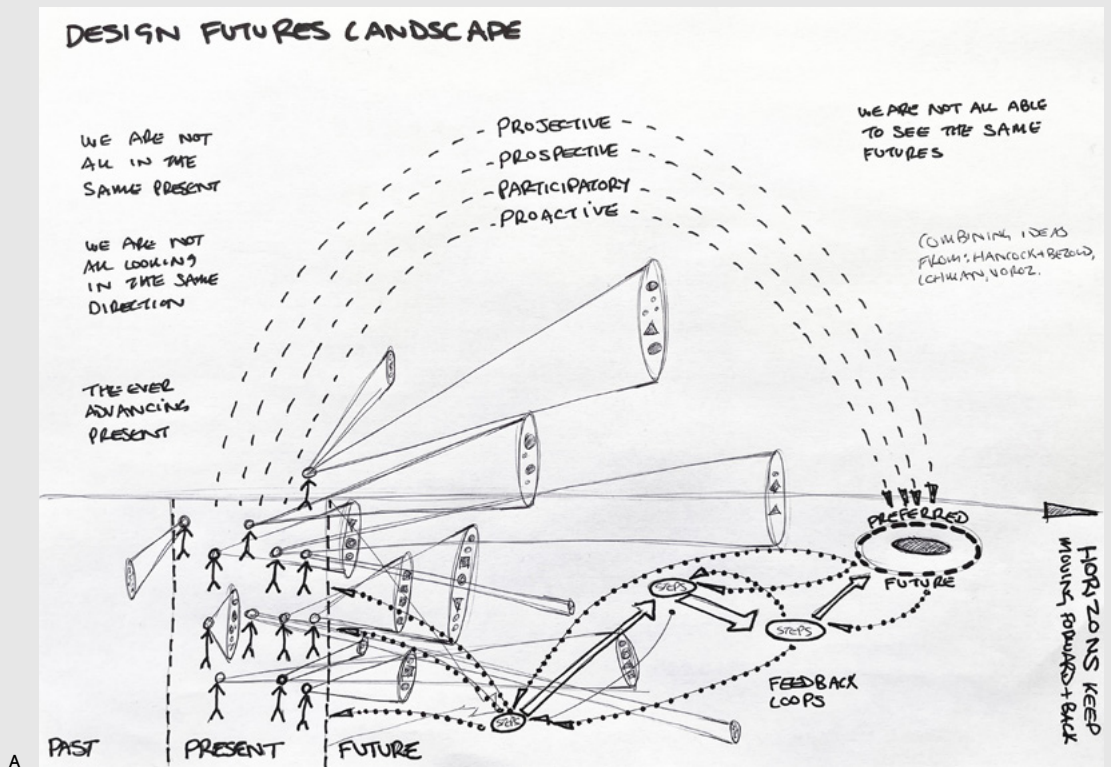 DESIGN FUTURES LANDSCAPE
WE ARE NOT
ALL IN THE
SAME PRESENT
WE ARE NOT
ALL LOOKING
IN THE SAME
DIRECTION
THE EVER
ADVANCING
PRESENT
PROJECTIVE
PROSPECTIVE
PARTICIPATORY
PROACTIVE
WE ARE NOT ALL ABLE
TO SEE THE SAME
FUTURES
COMBINING IDEAS
FROM: HANCOCK+BEZOLD,
VOROZ.
PREFERRED
FUTURE
STEPS
STEPS
STEPS
FEEDBACK
LOOPS
HORIZONS KEEP
MOVING FORWARD+BACK
PAST
PRESENT
FUTURE
A